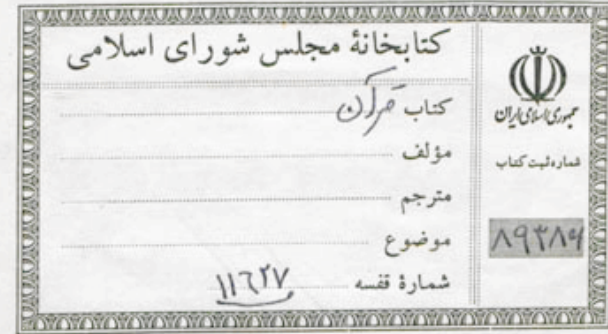 کتابخانهٔ مجلس شورای اسلامی
کتاب قرآن
مؤلف
مترجم
موضوع
شمارهٔ قفسه ۱۱۶۲۷
جمهوری اسلامی ایران
شماره ثبت کتاب
۸۹۳۸۶